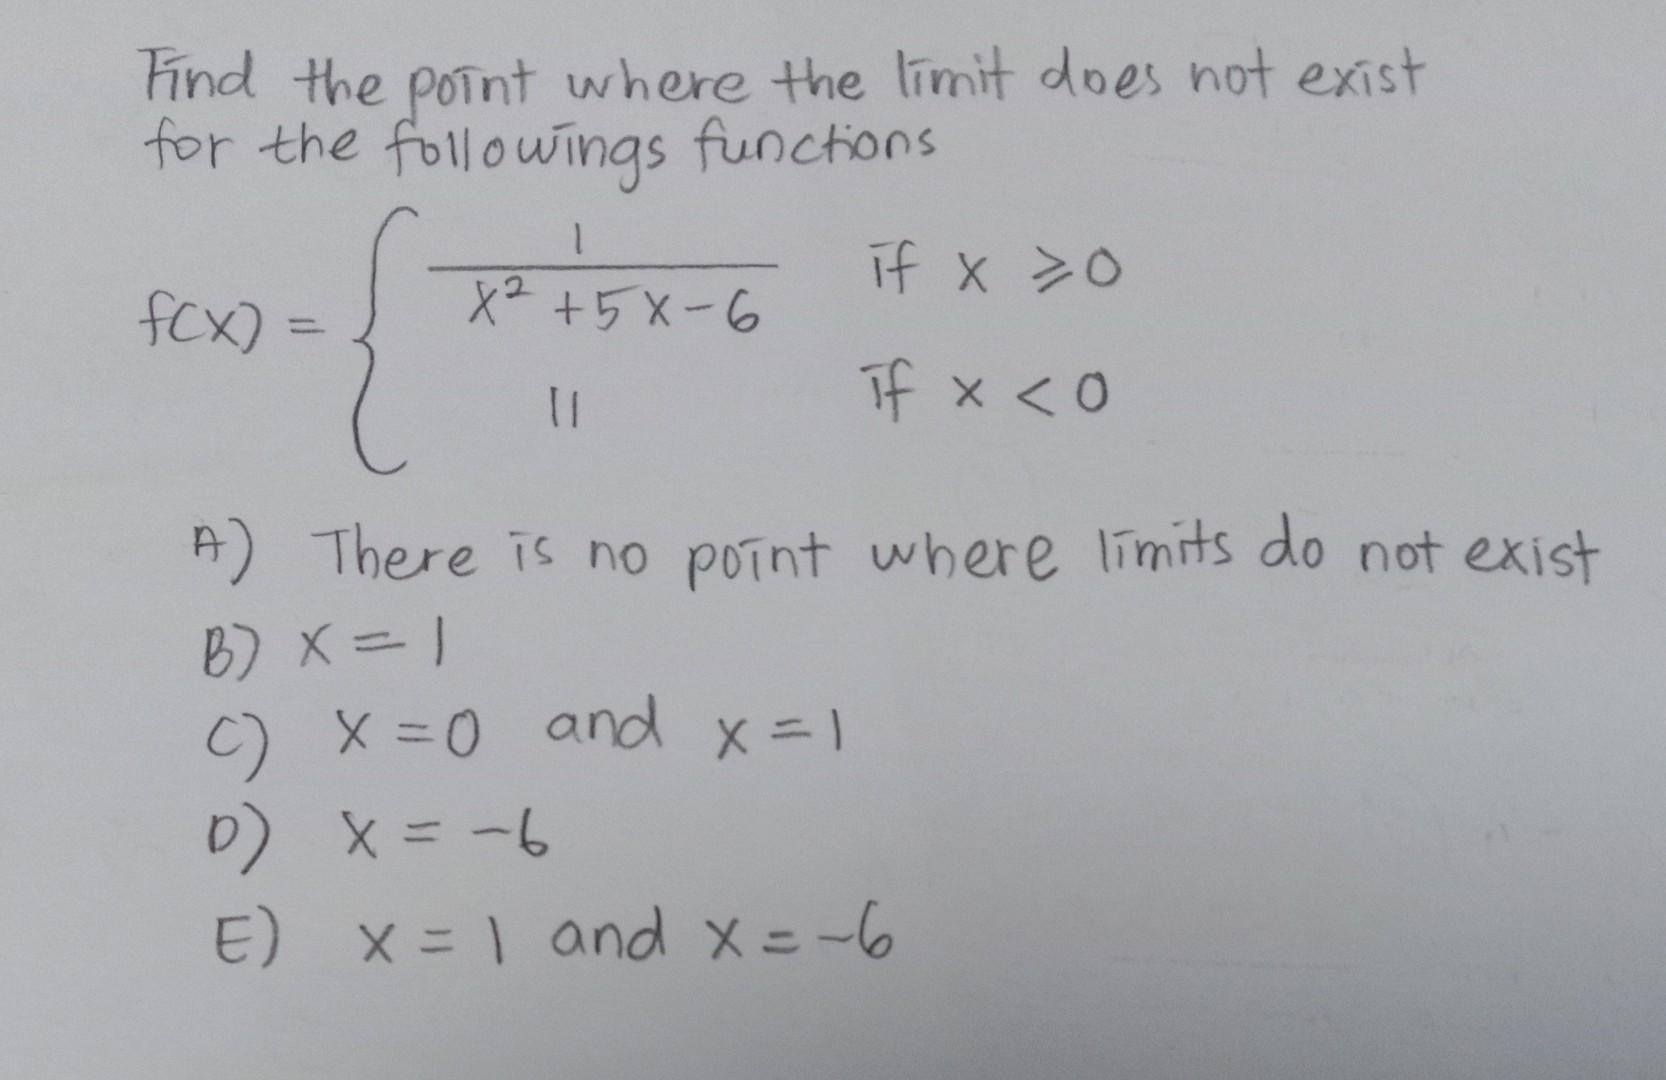 Find the point where the limit does not exist
for the followings functions
f(x) = { 1/(x² + 5x - 6) if x ⩾ 0
11 if x < 0
A) There is no point where limits do not exist
B) x = 1
C) x = 0 and x = 1
D) x = -6
E) x = 1 and x = -6